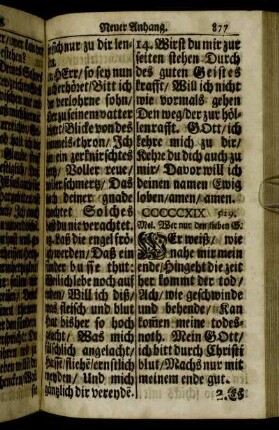 Neuer Anhang. 877
gesch nur zu dir len-
HErr/ so sey nun
erhöret/ Bitt ich
verlohrne sohn/
zu seinem vatter
Blicke von des
mels-thron/ Ich
ein zerknirschtes
Voller reue/
schmertz/ Das
deiner gnade
achtet Solches
du nie verachtet.
Laß die engel frö-
werden/ Daß ein
der busse thut
lich lebe noch auf
Will ich diß/
fleisch und blut
bisher so hoch
acht/ Was mich
lich angelacht/
Hasse/ fliehe/ ernstlich
meyden/ Und mich
gäntzlich dir vereyde-
14. Wirst du mir zur
seiten stehen Durch
des guten Geistes
krafft/ Will ich nicht
wie vormals gehen
Den weg/ der zur höl-
lenrafft. GOtt/ ich
kehre mich zu dir/
Kehre du dich auch zu
mir/ Davor will ich
deinen namen Ewig
loben/ amen/ amen.
CCCCCXIX 519.
Mel. Wer nur den lieben G.
WEr weiß/ wie
nahe mir mein
ende/ Hingeht die zeit
her kommt der tod/
Ach/ wie geschwinde
und behende/ Kan
kom̃en meine todes-
noth. Mein GOtt/
ich bitt durch Christi
blut/ Machs nur mit
meinem ende gut.
2. Es